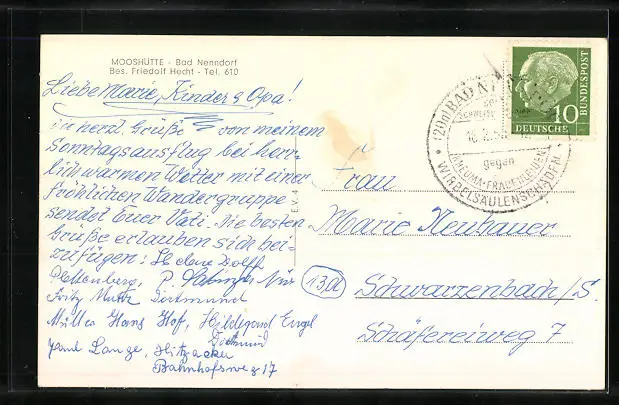 MOOSHÜTTE - Bad Nenndorf
Bes. Friedolf Hecht - Tel. 610
Liebe Marie, Kinder & Opa!
die herzl. Grüße von meinem
Sonntagsausflug bei herr-
lich warmen Wetter mit einer
fröhlichen Wandergruppe
sendet Euer Vati. Die besten
Grüße erlauben sich bei-
zufügen:
Plettenberg, P.
Fritz Dortmund
Müller Hans Hof, Hildegard Engel
Dortmund
Lange, Hitzacker
Bahnhofsweg 17
Frau
Marie Neuhauer
13a Schwarzenbach/S.
Schäfereiweg 7
(20a) BAD NENNDORF
gegen
RHEUMA-FRAUENLEIDEN
WIRBELSÄULENSCHÄDEN
10
DEUTSCHE
BUNDESPOST